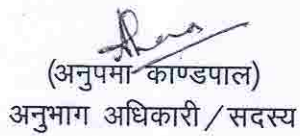 (अनुपमा काण्डपाल)
अनुभाग अधिकारी/सदस्य